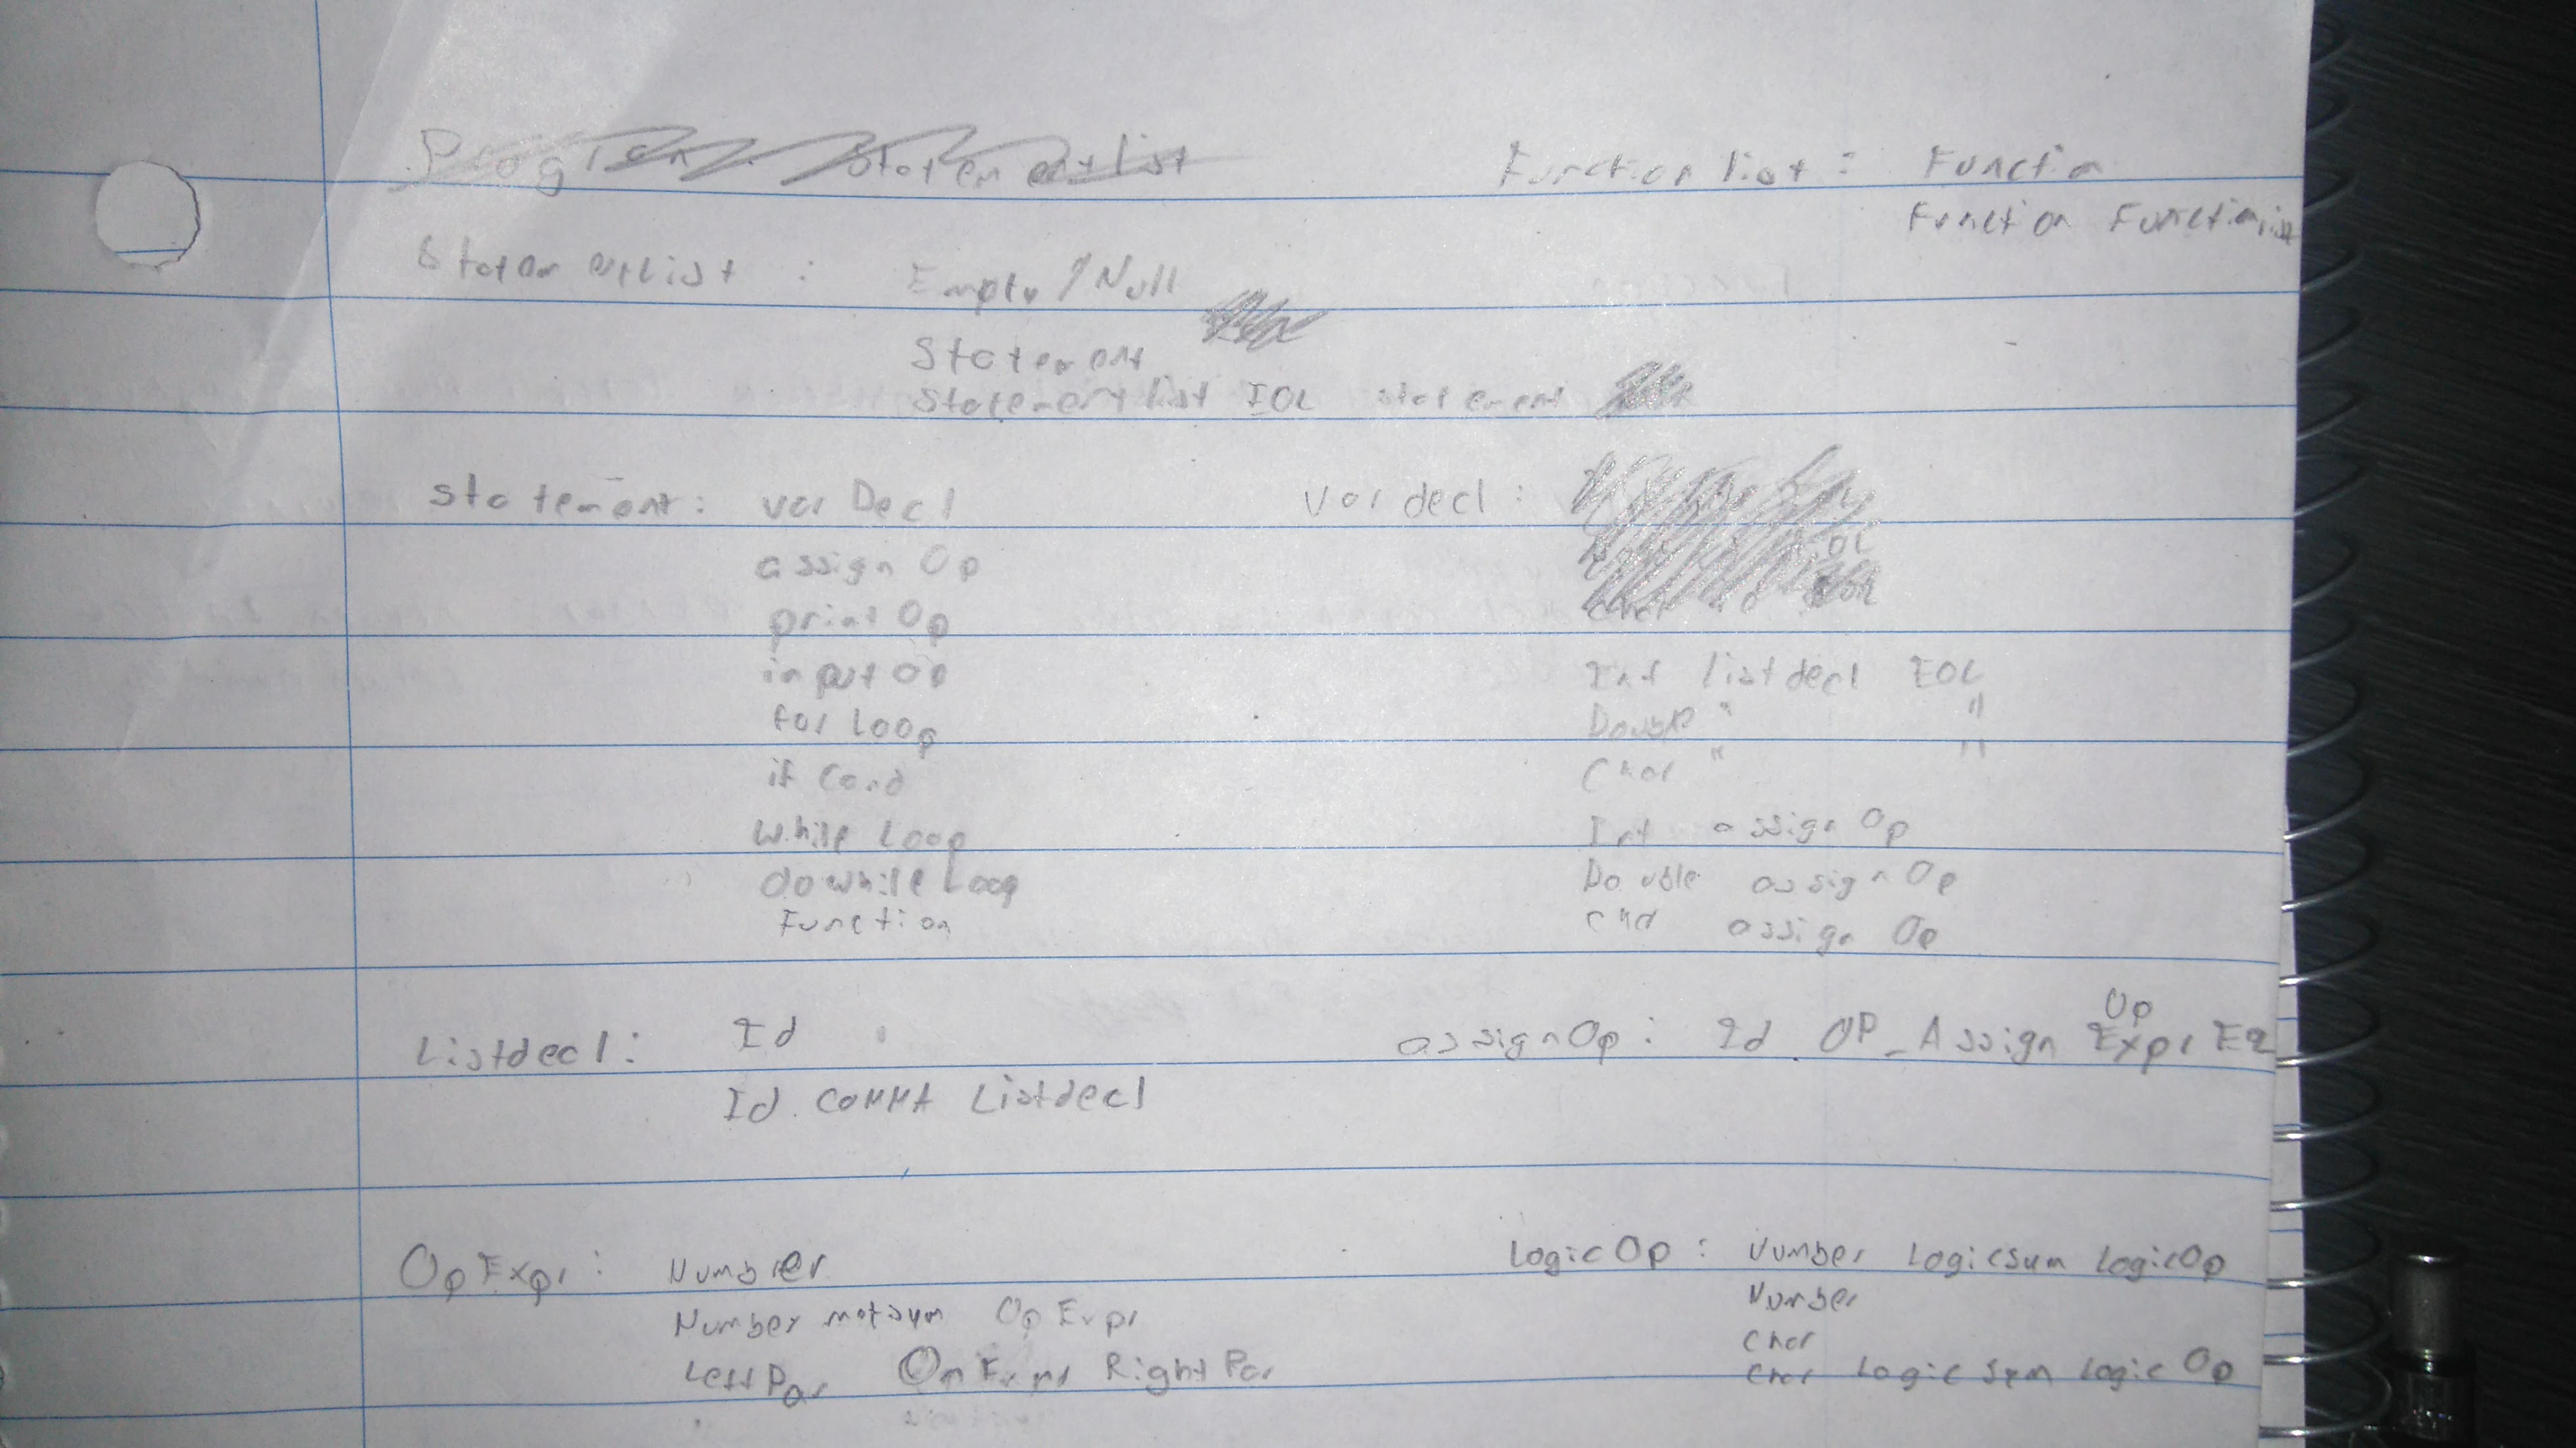 Program : Statementlist
Function list : Function
Function Functionlist
Statementlist : Empty / Null
Statement
Statementlist EOL statement
statement : var Decl
assign Op
print Op
input Op
for Loop
if Cond
while Loop
dowhile Loop
Function
Var decl :
Int listdecl EOL
Double " "
Char " "
Int assign Op
Double assign Op
Char assign Op
Listdecl : Id
Id COMMA Listdecl
assignOp : Id OP_Assign Op Expr
OpExpr : Number
Number matsym OpExpr
LeftPar OpExpr RightPar
LogicOp : Number Logicsym LogicOp
Number
Char
Char Logic sym Logic Op